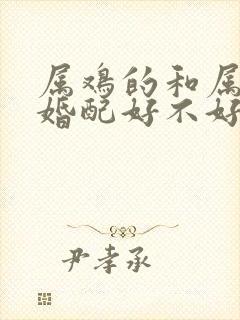 属鸡的和属
婚配好不好
尹孝承